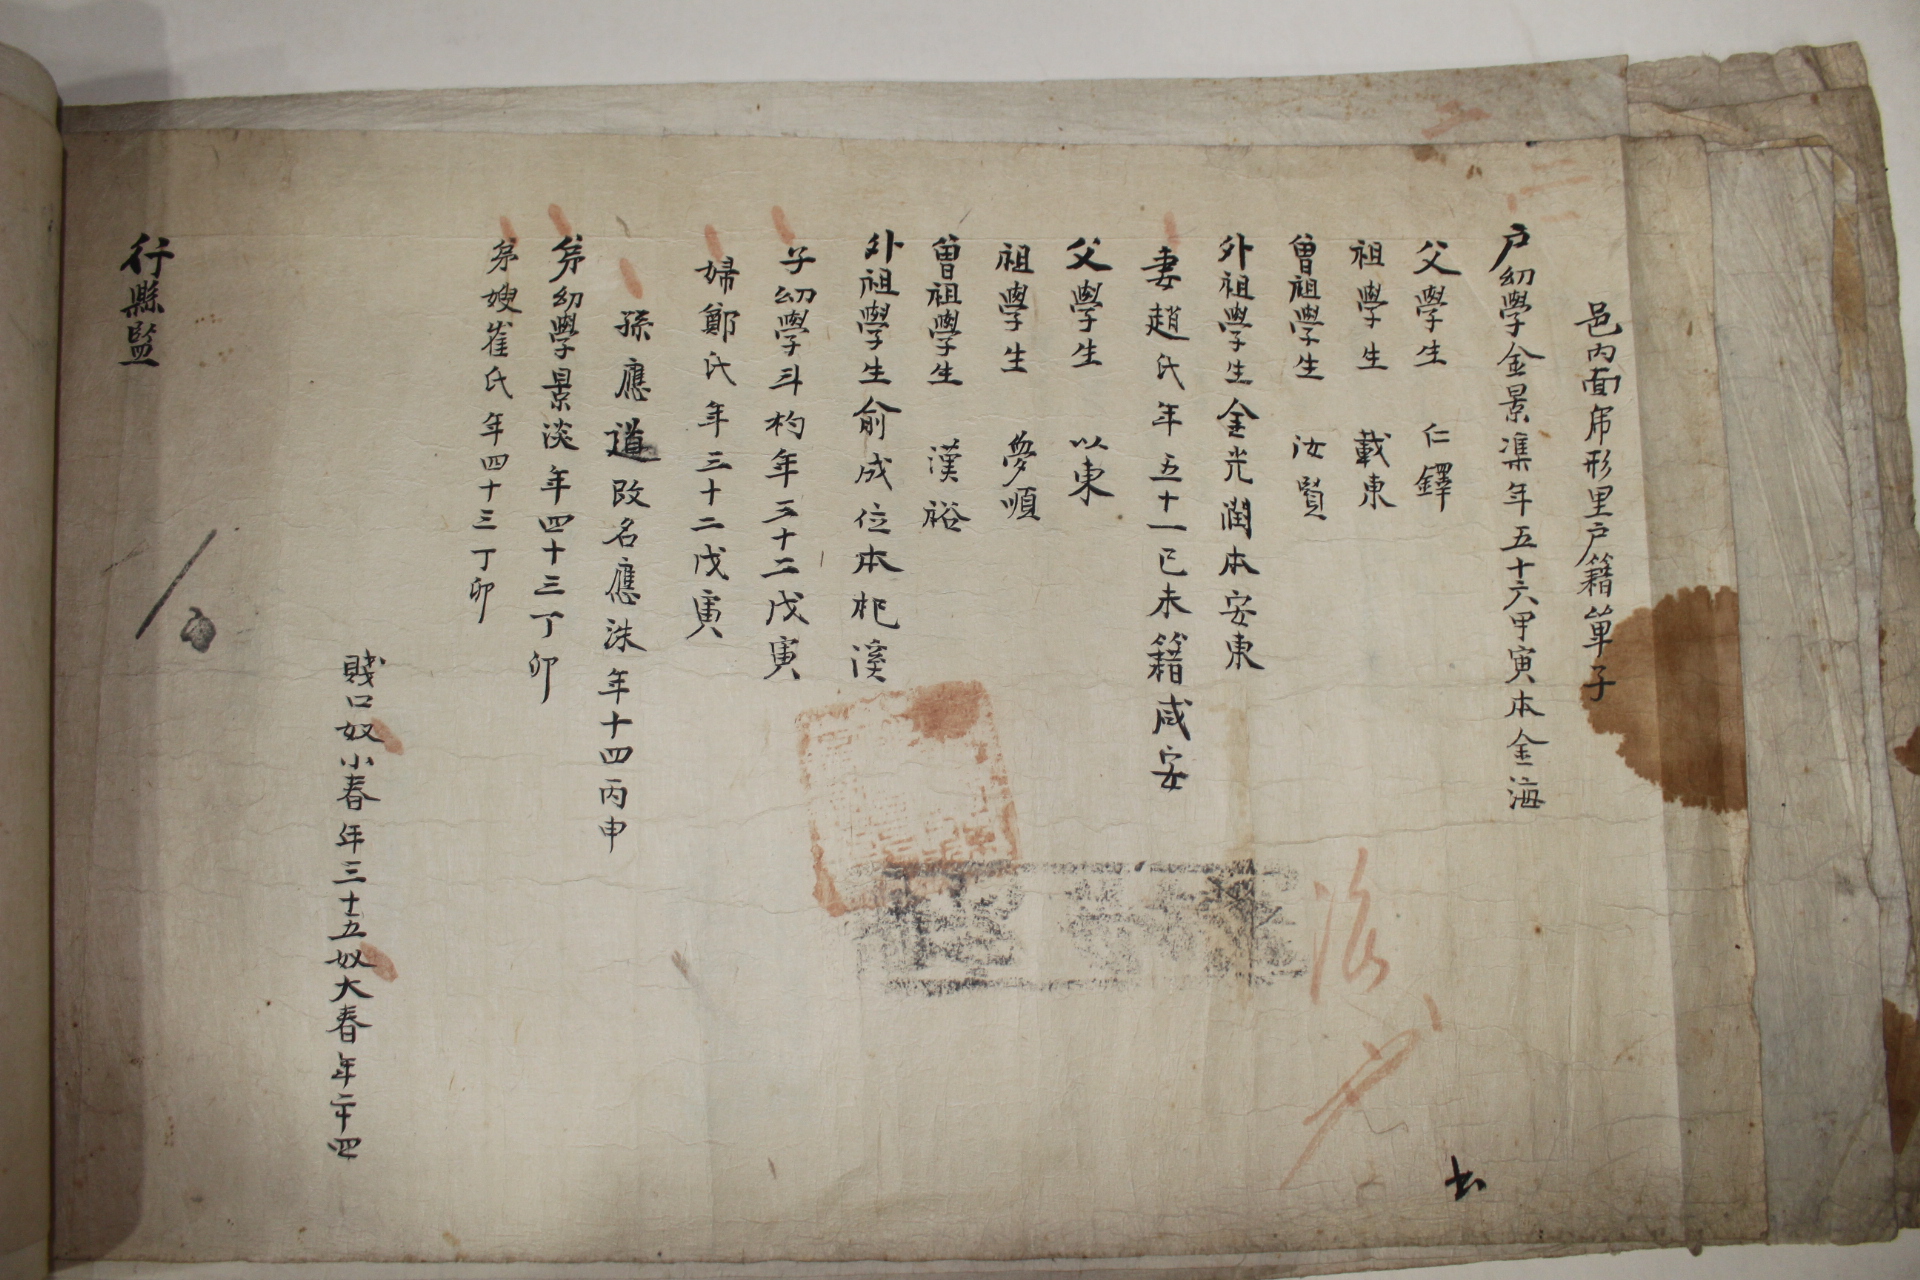 邑內面帋形里戶籍單子
戶幼學金景㵗年五十六甲寅本金海
父學生 仁鐸
祖學生 載東
曾祖學生 汝賢
外祖學生金光潤本安東
妻趙氏年五十一己未籍咸安
父學生 以東
祖學生 夢順
曾祖學生 漢裕
外祖學生俞成位本杞溪
子幼學斗杓年三十二戊寅
婦鄭氏年三十二戊寅
孫應道改名應洙年十四丙申
弟幼學景淡年四十三丁卯
弟嫂崔氏年四十三丁卯
賤口奴小春年三十五奴大春年二十四
行縣監